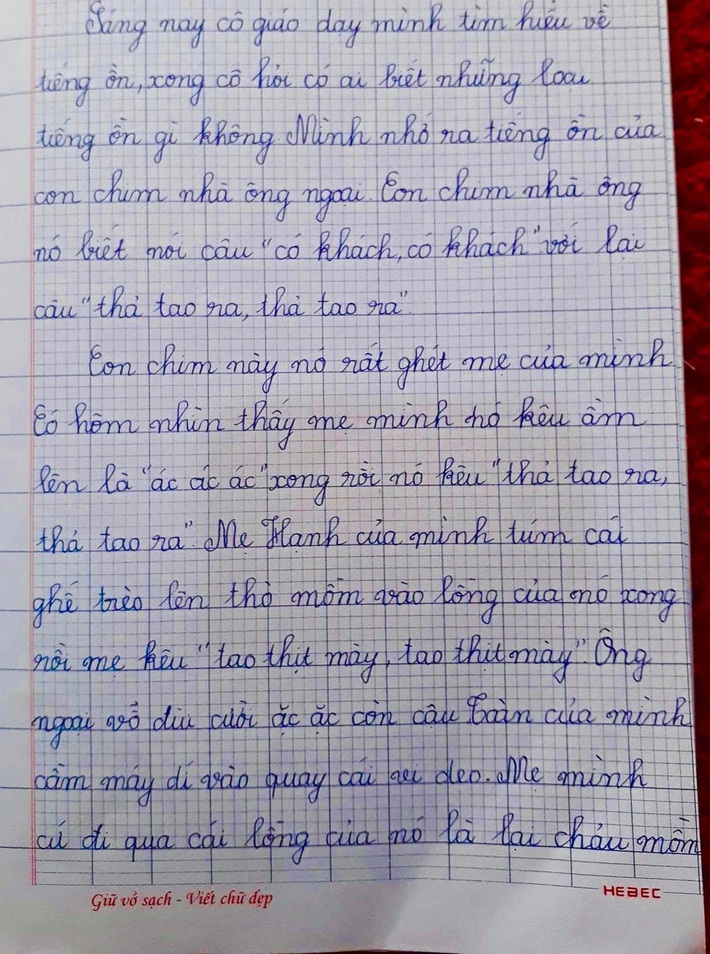 Sáng nay cô giáo dạy mình tìm hiểu về
tiếng ồn, xong cô hỏi có ai biết những loại
tiếng ồn gì không Mình nhớ ra tiếng ồn của
con chim nhà ông ngoại. Con chim nhà ông
nó biết nói câu "có khách, có khách" với lại
câu "thả tao ra, thả tao ra"
Con chim này nó rất ghét mẹ của mình
Có hôm nhìn thấy mẹ mình nó kêu ầm
lên là "ác ác ác" xong rồi nó kêu "thả tao ra,
thả tao ra". Mẹ Hạnh của mình túm cái
ghế trèo lên thò mồm vào lồng của nó xong
rồi mẹ kêu "tao thịt mày, tao thịt mày". Ông
ngoại vỗ đùi cười ặc ặc còn cậu Toàn của mình
cầm máy dí vào quay cái đeo. Mẹ mình
cứ đi qua cái lồng của nó là lại chẩu mồm
Giữ vở sạch - Viết chữ đẹp
HEBEC